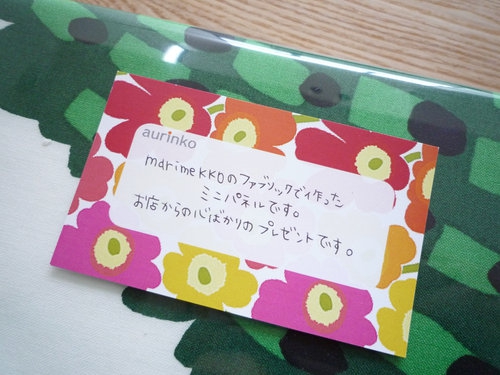 aurinko
marimekkoのファブリックで作った
ミニパネルです。
お店からの心ばかりのプレゼントです。